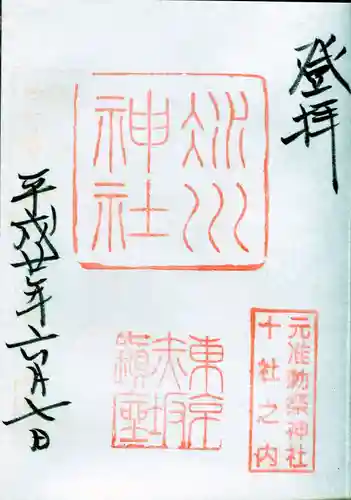 登拝
氷川
神社
東京
赤坂
鎮座
元准勅祭神社
十社之内
平成廿年六月七日